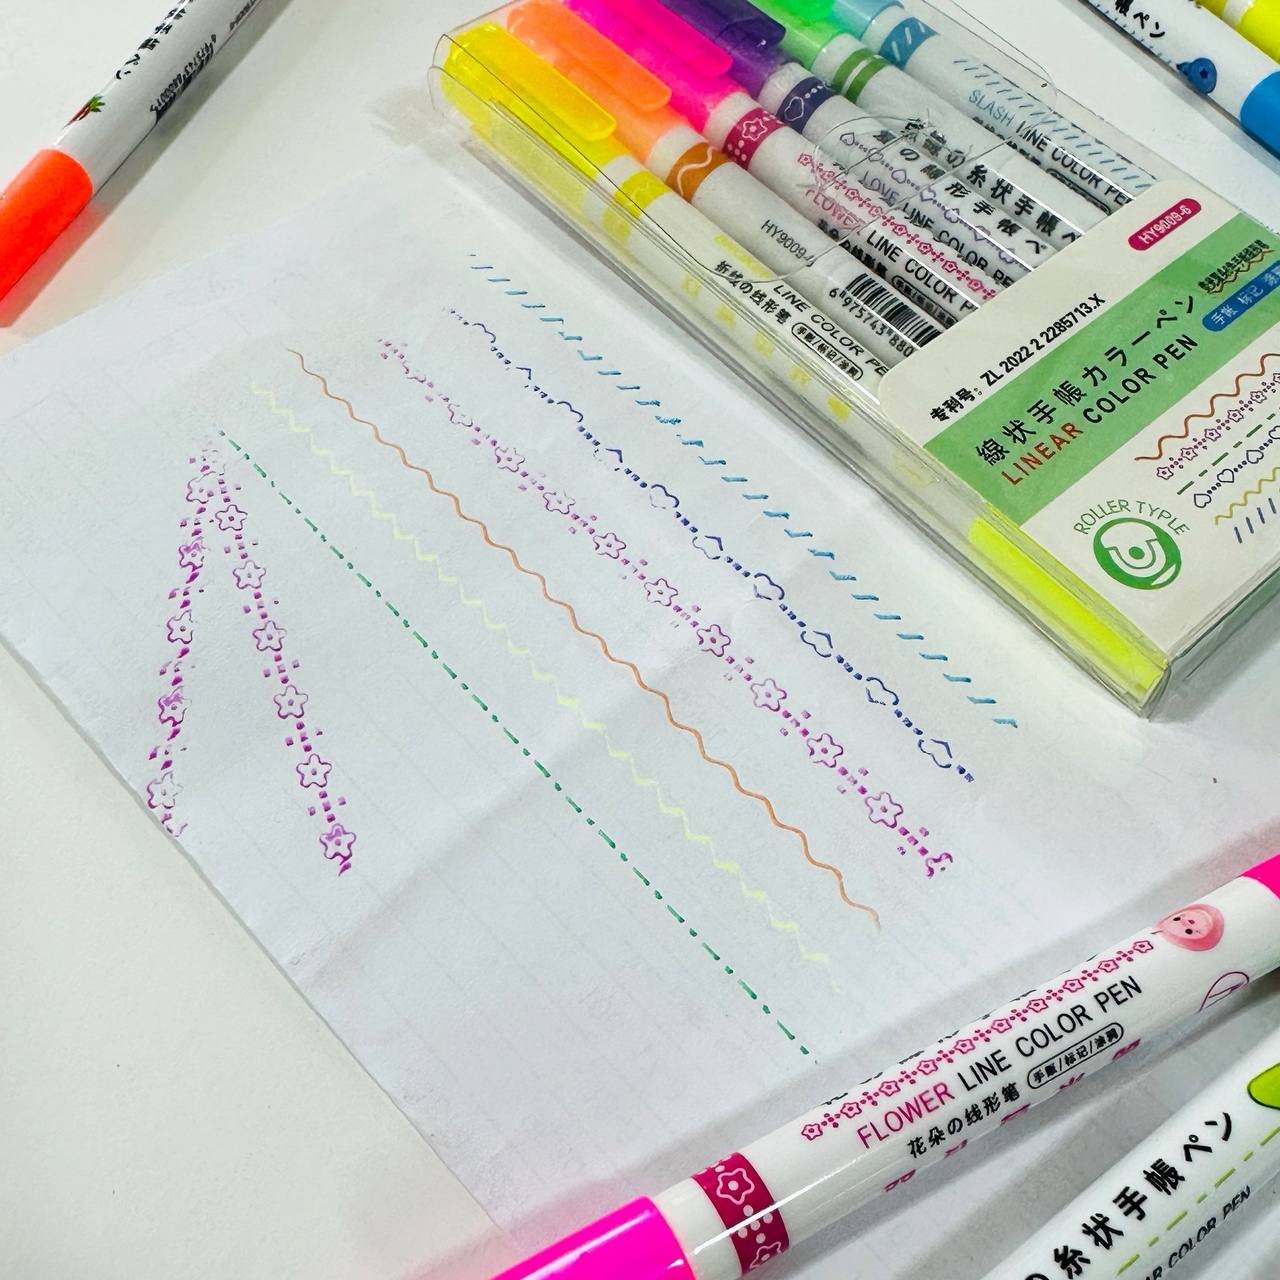 手帳ペン
SLASH LINE COLOR PE
の糸状手帳ペ
LOVE LINE COLOR PE
FLOWER LINE COLOR P
HY9009-
LINE COLOR PE
折线の线形笔 手账/标记/涂鸦
6 975743 880
HY9009-6
专利号：ZL 2022 2 2285713.X
線状手帳カラーペン
LINEAR COLOR PEN
手账 标记
ROLLER TYPLE
FLOWER LINE COLOR PEN
花朵の线形笔 手账/标记/涂鸦
の糸状手帳ペン
COLOR PEN